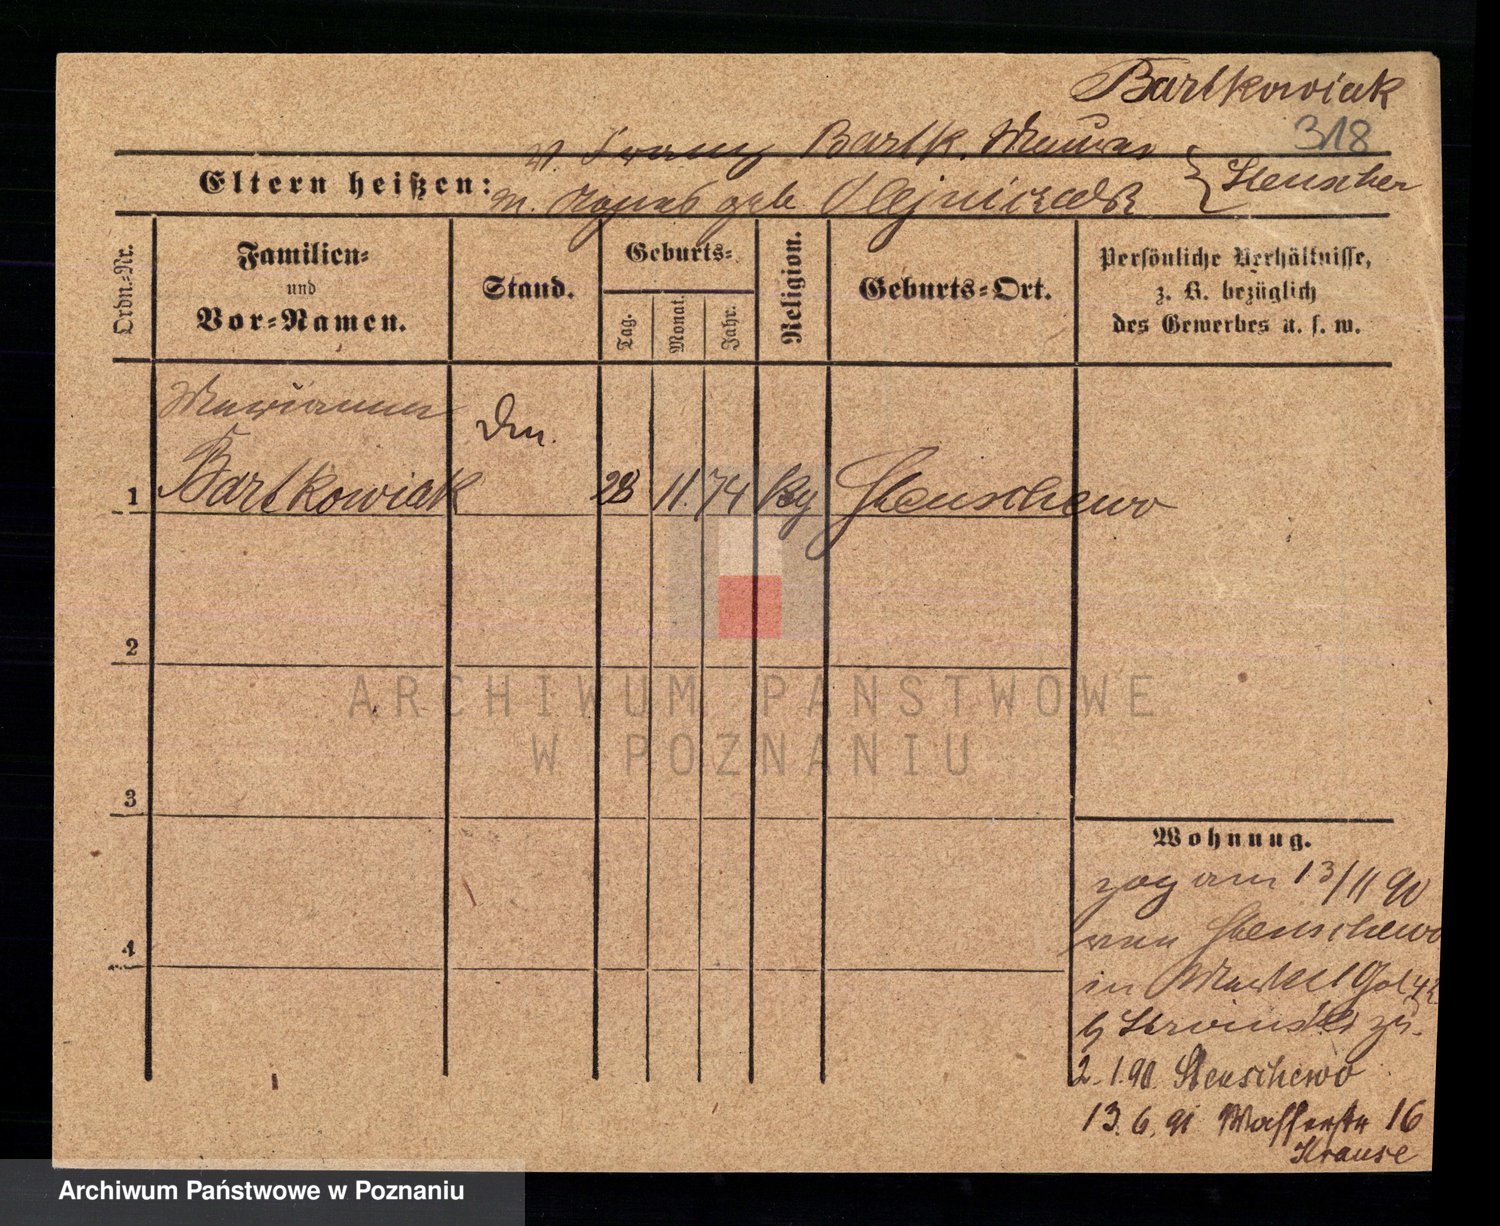 Bartkowiak
318
v. Franz Bartk. Maurer
Eltern heißen:
m. Agnes geb. Olejniczak
Stenschew
Ordn.-Nr.
Familien-
und
Vor-Namen.
Stand.
Geburts-
Tag.
Monat.
Jahr.
Religion.
Geburts-Ort.
Persönliche Verhältnisse,
z. B. bezüglich
des Gewerbes u. s. w.
Marianna
Bartkowiak
1
28 11. 74
Stenschewo
2
3
4
ARCHIWUM PAŃSTWOWE
W POZNANIU
Wohnung.
zog am 13/11 90
von Stenschewo
in
zu.
2.1.90. Stenschewo
13.6.91 16
Krause
Archiwum Państwowe w Poznaniu